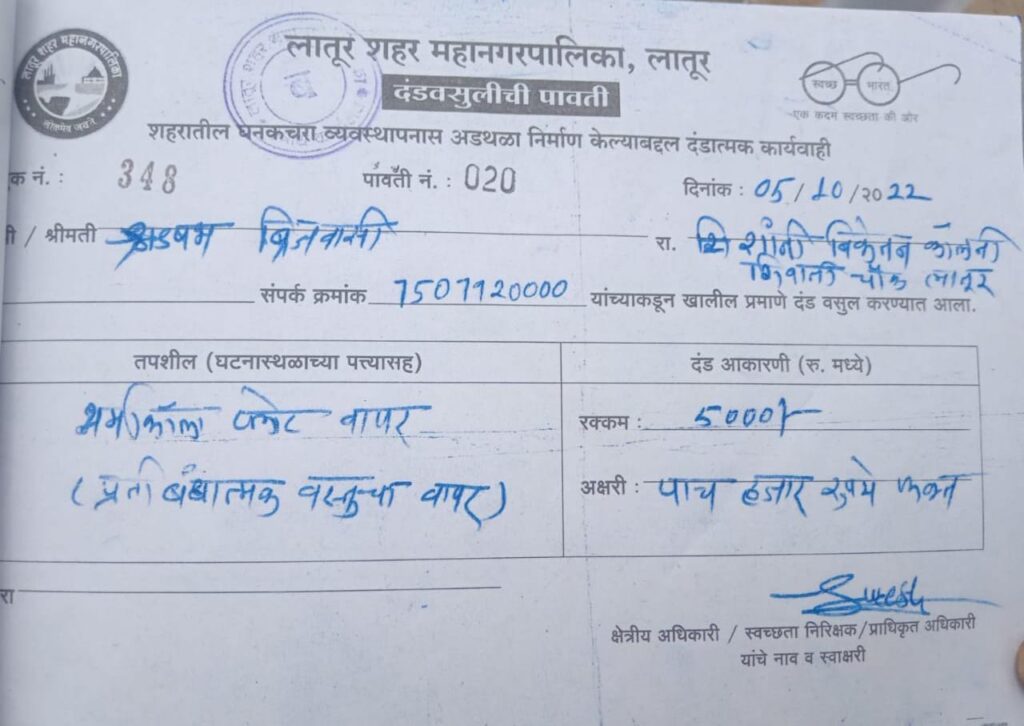 लातूर शहर महानगरपालिका
लोकमेव जयते
लातूर शहर महानगरपालिका, लातूर
दंडवसुलीची पावती
स्वच्छ भारत
एक कदम स्वच्छता की ओर
शहरातील घनकचरा व्यवस्थापनास अडथळा निर्माण केल्याबद्दल दंडात्मक कार्यवाही
क नं. : 348 पावती नं. : 020 दिनांक : 05/10/2022
ी / श्रीमती ब्रिजवासी रा. कॉलनी
शिवाजी चौक लातूर
संपर्क क्रमांक 7507920000 यांच्याकडून खालील प्रमाणे दंड वसुल करण्यात आला.
तपशील (घटनास्थळाच्या पत्त्यासह) दंड आकारणी (रु. मध्ये)
थर्माकॉल प्लेट वापर रक्कम : 5000/-
(प्रतीबंधात्मक वस्तुचा वापर) अक्षरी : पाच हजार रुपये फक्त
रा
Suresh
क्षेत्रीय अधिकारी / स्वच्छता निरिक्षक/प्राधिकृत अधिकारी
यांचे नाव व स्वाक्षरी